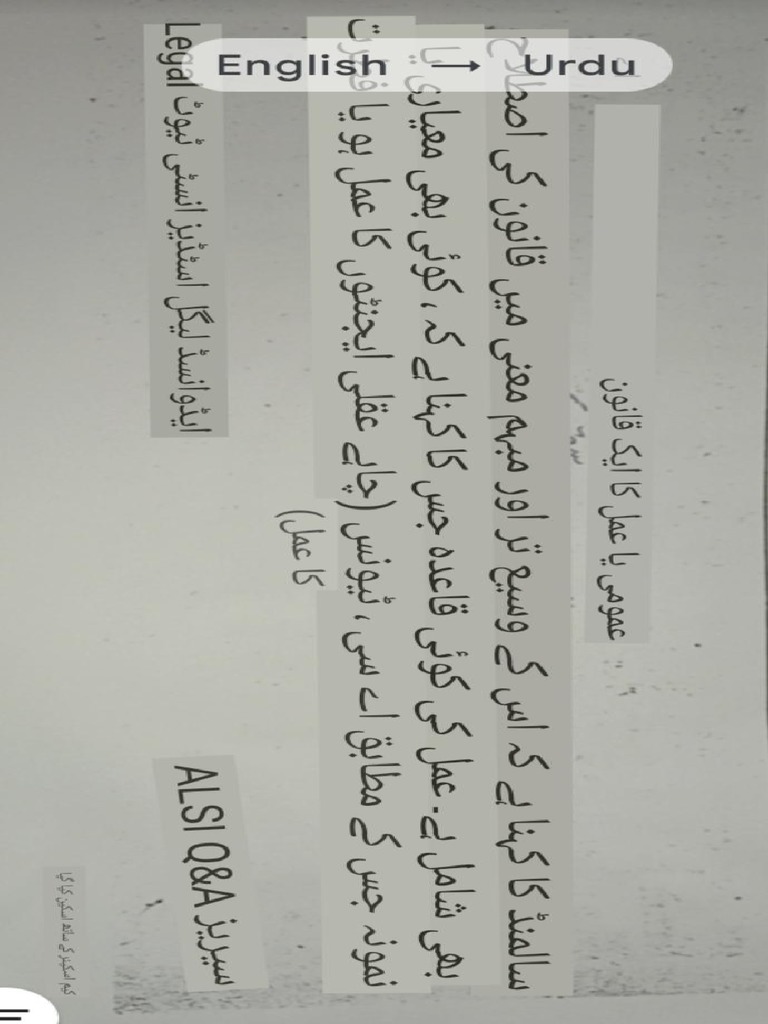 English → Urdu
عمومی یا عمل کا ایک قانون
سالمنڈ کا کہنا ہے کہ اس کے وسیع تر اور مبہم معنی میں قانون کی اصطلاح
بھی شامل ہے۔ عمل کی کوئی قاعدہ جس کا کہنا ہے کہ، کوئی بھی معیاری یا
نمونہ جس کے مطابق اے سی، ٹیونس (چاہے عقلی ایجنٹوں کا عمل ہو یا فطرت
کا عمل)
سیریز ALSI Q&A
ایڈوانسڈ لیگل اسٹڈیز انسٹی ٹیوٹ Legal
کیم اسکینر کے ساتھ اسکین کیا گیا